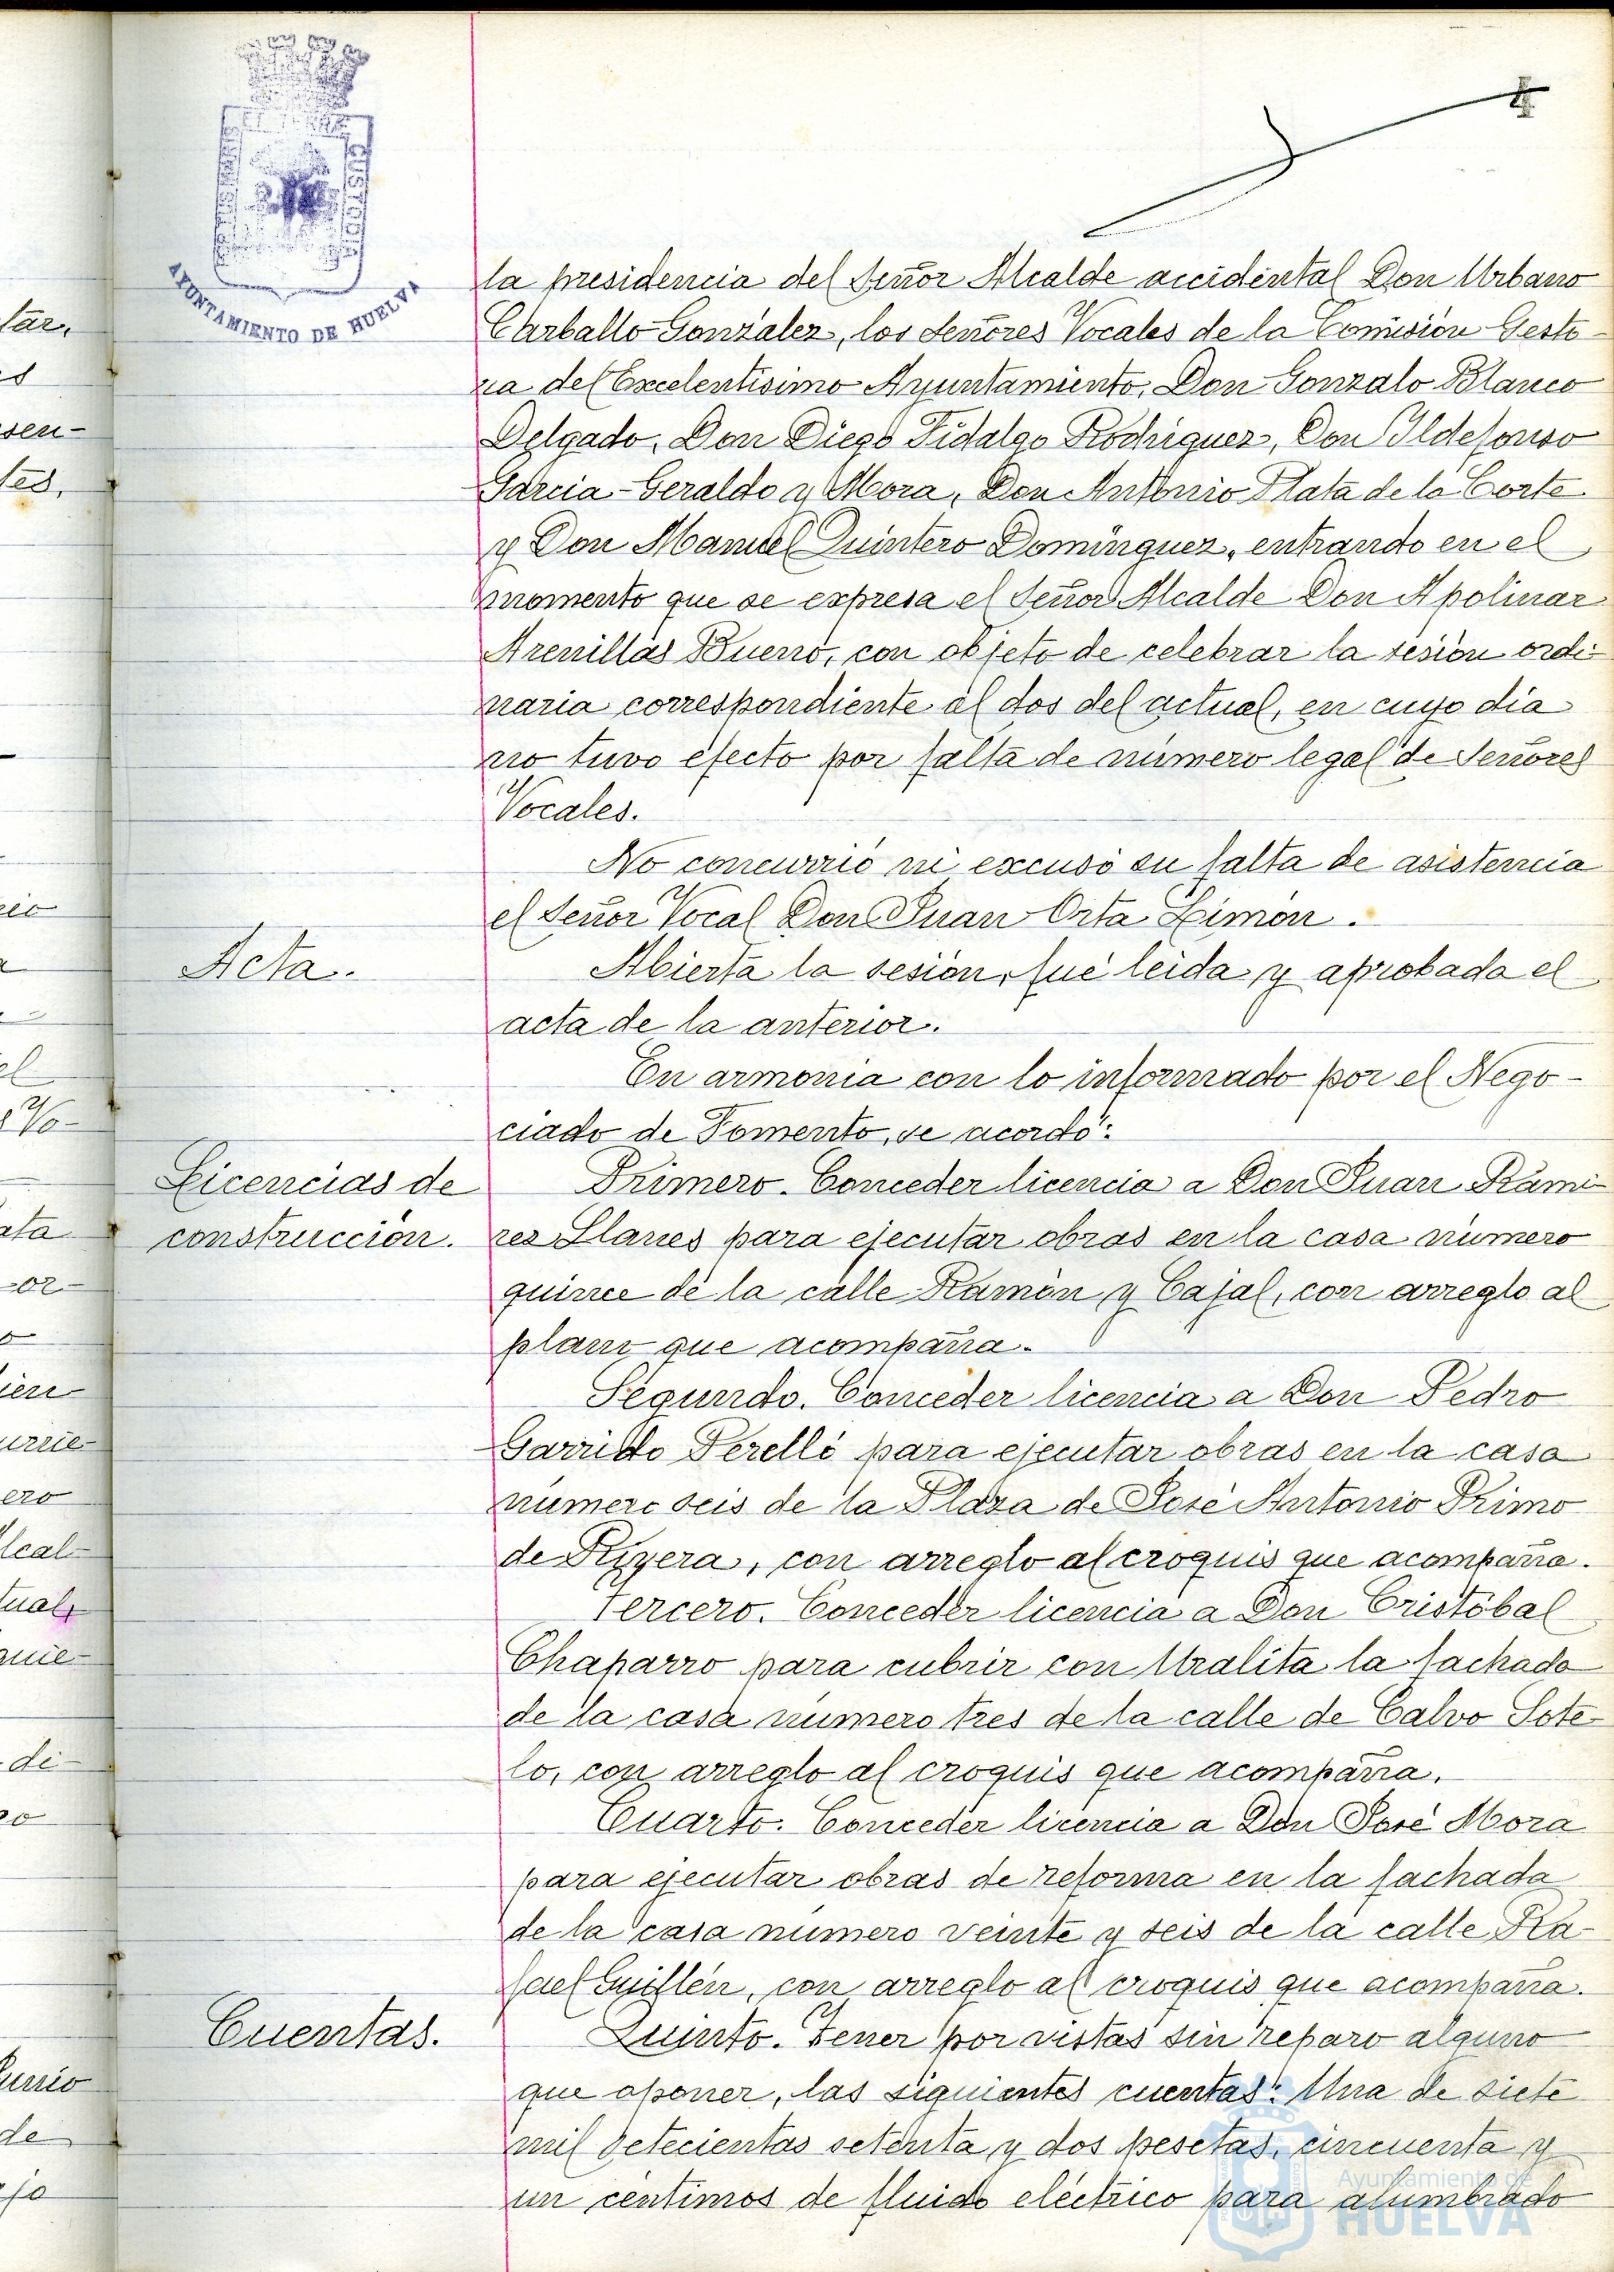 4
PORTUS MARIS
ET TERRAE
CUSTODIA
AYUNTAMIENTO DE HUELVA
la presidencia del Señor Alcalde accidental Don Urbano
Carballo González, los Señores Vocales de la Comisión Gesto-
ra del Excelentísimo Ayuntamiento, Don Gonzalo Blanco
Delgado, Don Diego Fidalgo Rodriguez, Don Ildefonso
Garcia-Geraldo y Mora, Don Antonio Plata de la Corte
y Don Manuel Quintero Domínguez, entrando en el
momento que se expresa el Señor Alcalde Don Apolinar
Arenillas Bueno, con objeto de celebrar la sesión ordi-
naria correspondiente al dos del actual, en cuyo día
no tuvo efecto por falta de número legal de Señores
Vocales.
No concurrió ni excusó su falta de asistencia
el Señor Vocal Don Juan Orta Limón.
Acta.
Abierta la sesión, fué leida y aprobada el
acta de la anterior.
En armonia con lo informado por el Nego-
ciado de Fomento, se acordó:
Licencias de
construcción.
Primero. Conceder licencia a Don Juan Rami-
rez Llanes para ejecutar obras en la casa número
quince de la calle Ramón y Cajal, con arreglo al
plano que acompaña.
Segundo. Conceder licencia a Don Pedro
Garrido Perelló para ejecutar obras en la casa
número seis de la Plaza de José Antonio Primo
de Rivera, con arreglo al croquis que acompaña.
Tercero. Conceder licencia a Don Cristóbal
Chaparro para cubrir con Uralita la fachada
de la casa número tres de la calle de Calvo Sote-
lo, con arreglo al croquis que acompaña.
Cuarto. Conceder licencia a Don José Mora
para ejecutar obras de reforma en la fachada
de la casa número veinte y seis de la calle Ra-
fael Guillén, con arreglo al croquis que acompaña.
Cuentas.
Quinto. Tener por vistas sin reparo alguno
que oponer, las siguientes cuentas: Una de siete
mil setecientas setenta y dos pesetas, cincuenta y
un céntimos de fluido eléctrico para alumbrado
Ayuntamiento de
HUELVA